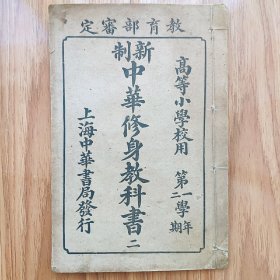 教育部審定
高等小學校用 第一學年
二期
新制
中華修身教科書 二
上海中華書局發行